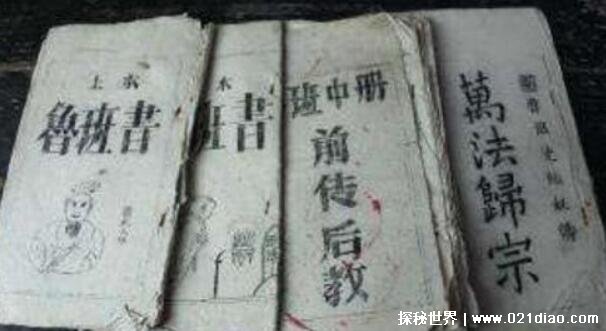 上水
魯班書
水
班書
班中册
前传后教
萬法歸宗
探秘世界｜www.021diao.com